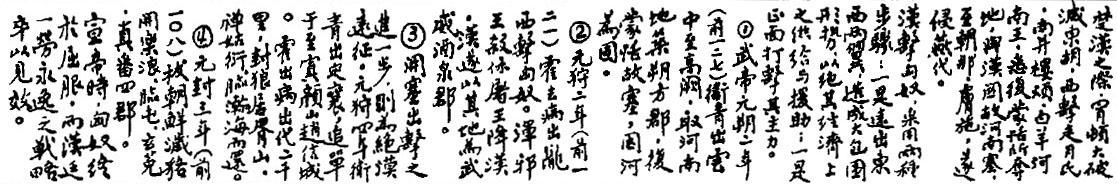 楚漢之際冒頓大破
滅東胡、西擊走月氏
、南并樓煩、白羊河
南王、悉復蒙恬所奪
地、與漢關故河南塞
至朝那、膚施、遂
侵燕代。
漢擊匈奴，采用兩種
步驟：一是遠出東
西兩翼，造成大包圍
形勢，以絕其經濟上
之供給与援助；一是
正面打擊其主力。
①武帝元朔二年
(前一二七)衛青出雲
中至高闕，取河南
地築朔方郡，復
蒙恬故塞，因河
為固。
②元狩二年(前一
二一)霍去病出隴
西擊匈奴。渾邪
王殺休屠王降漢
，漢遂以其地為武
威酒泉郡。
③開塞出擊之
進一步，則為絕漠
遠征。元狩四年衛
青出定襄，追單
于至寘顏山趙信城
。霍去病出代二千
里，封狼居胥山，
禪姑衍臨瀚海而還。
④元封三年(前
一〇八)拔朝鮮滅貉
開樂浪、臨屯玄菟
、真番四郡。
宣帝時，匈奴終
於屈服。而漢廷
一勞永逸之戰略
卒以見效。